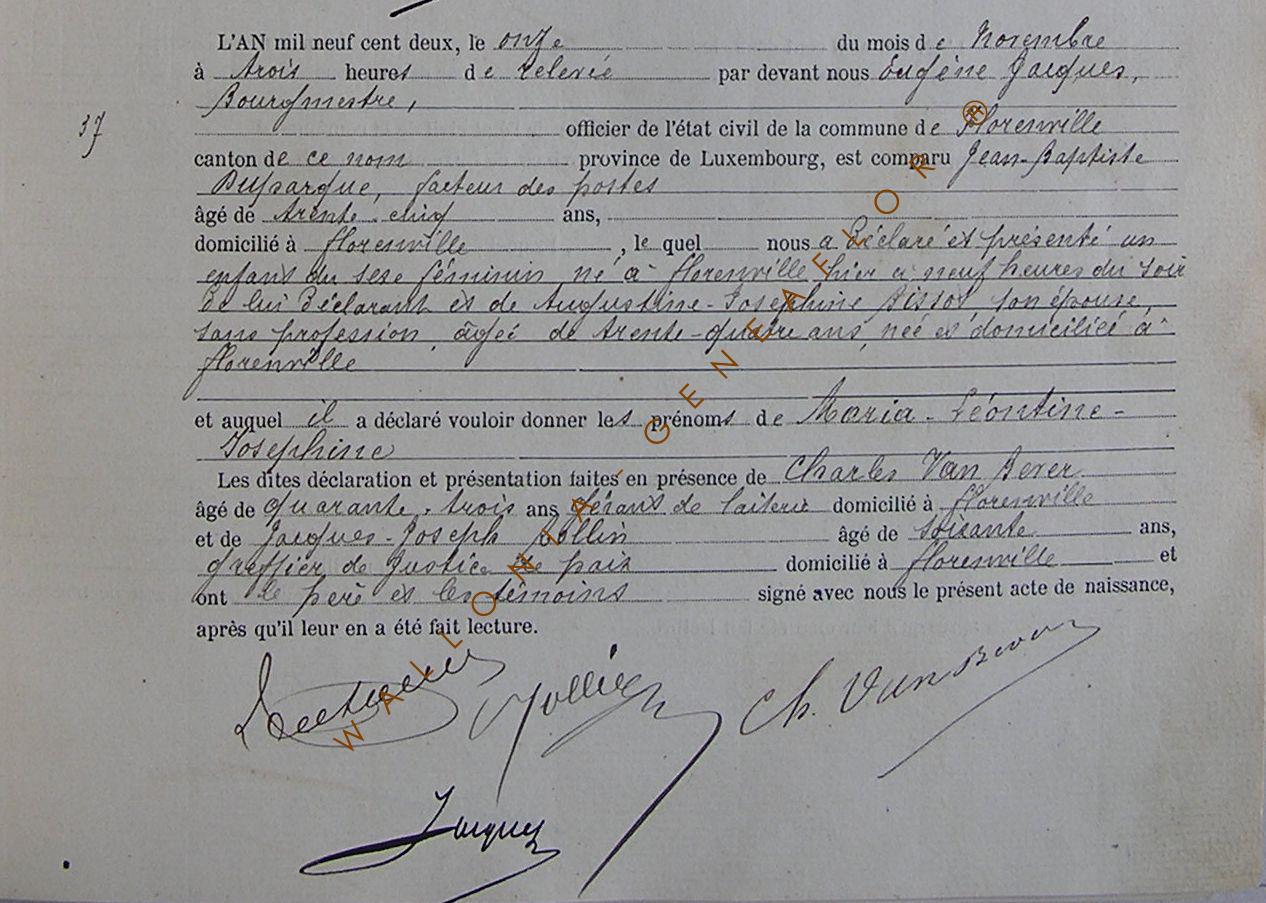 L'AN mil neuf cent deux, le onze du mois de Novembre
à trois heures de relevée par devant nous Eugène Jacques,
Bourgmestre,
37
officier de l'état civil de la commune de Florenville
canton de ce nom province de Luxembourg, est comparu Jean-Baptiste
facteur des postes
âgé de trente-cinq ans,
domicilié à Florenville, le quel nous a déclaré et présenté un
enfant du sexe féminin né à Florenville hier à neuf heures du soir
de lui déclarant et de Augustine-Josephine son épouse,
sans profession, âgée de trente-quatre ans, née et domiciliée à
Florenville
et auquel il a déclaré vouloir donner les prénoms de Maria-Léontine-
Josephine
Les dites déclaration et présentation faites en présence de Charles Van Bever
âgé de quarante-trois ans gérant de laiterie domicilié à Florenville
et de Jacques-Joseph âgé de soixante ans,
greffier de Justice de paix domicilié à Florenville et
ont le père et les témoins signé avec nous le présent acte de naissance,
après qu'il leur en a été fait lecture.
Ch. Van Bever
Jacques
WALLONIA GENEAFLOR ®